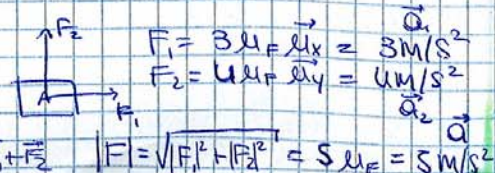 F₂
A
F₁
a⃗₁
F₁ = 3 u_F u⃗x = 3 m/s²
F₂ = 4 u_F u⃗y = 4 m/s²
a⃗₂
a⃗
+ F⃗₂ |F| = √|F₁|² + |F₂|² = 5 u_F = 5 m/s²